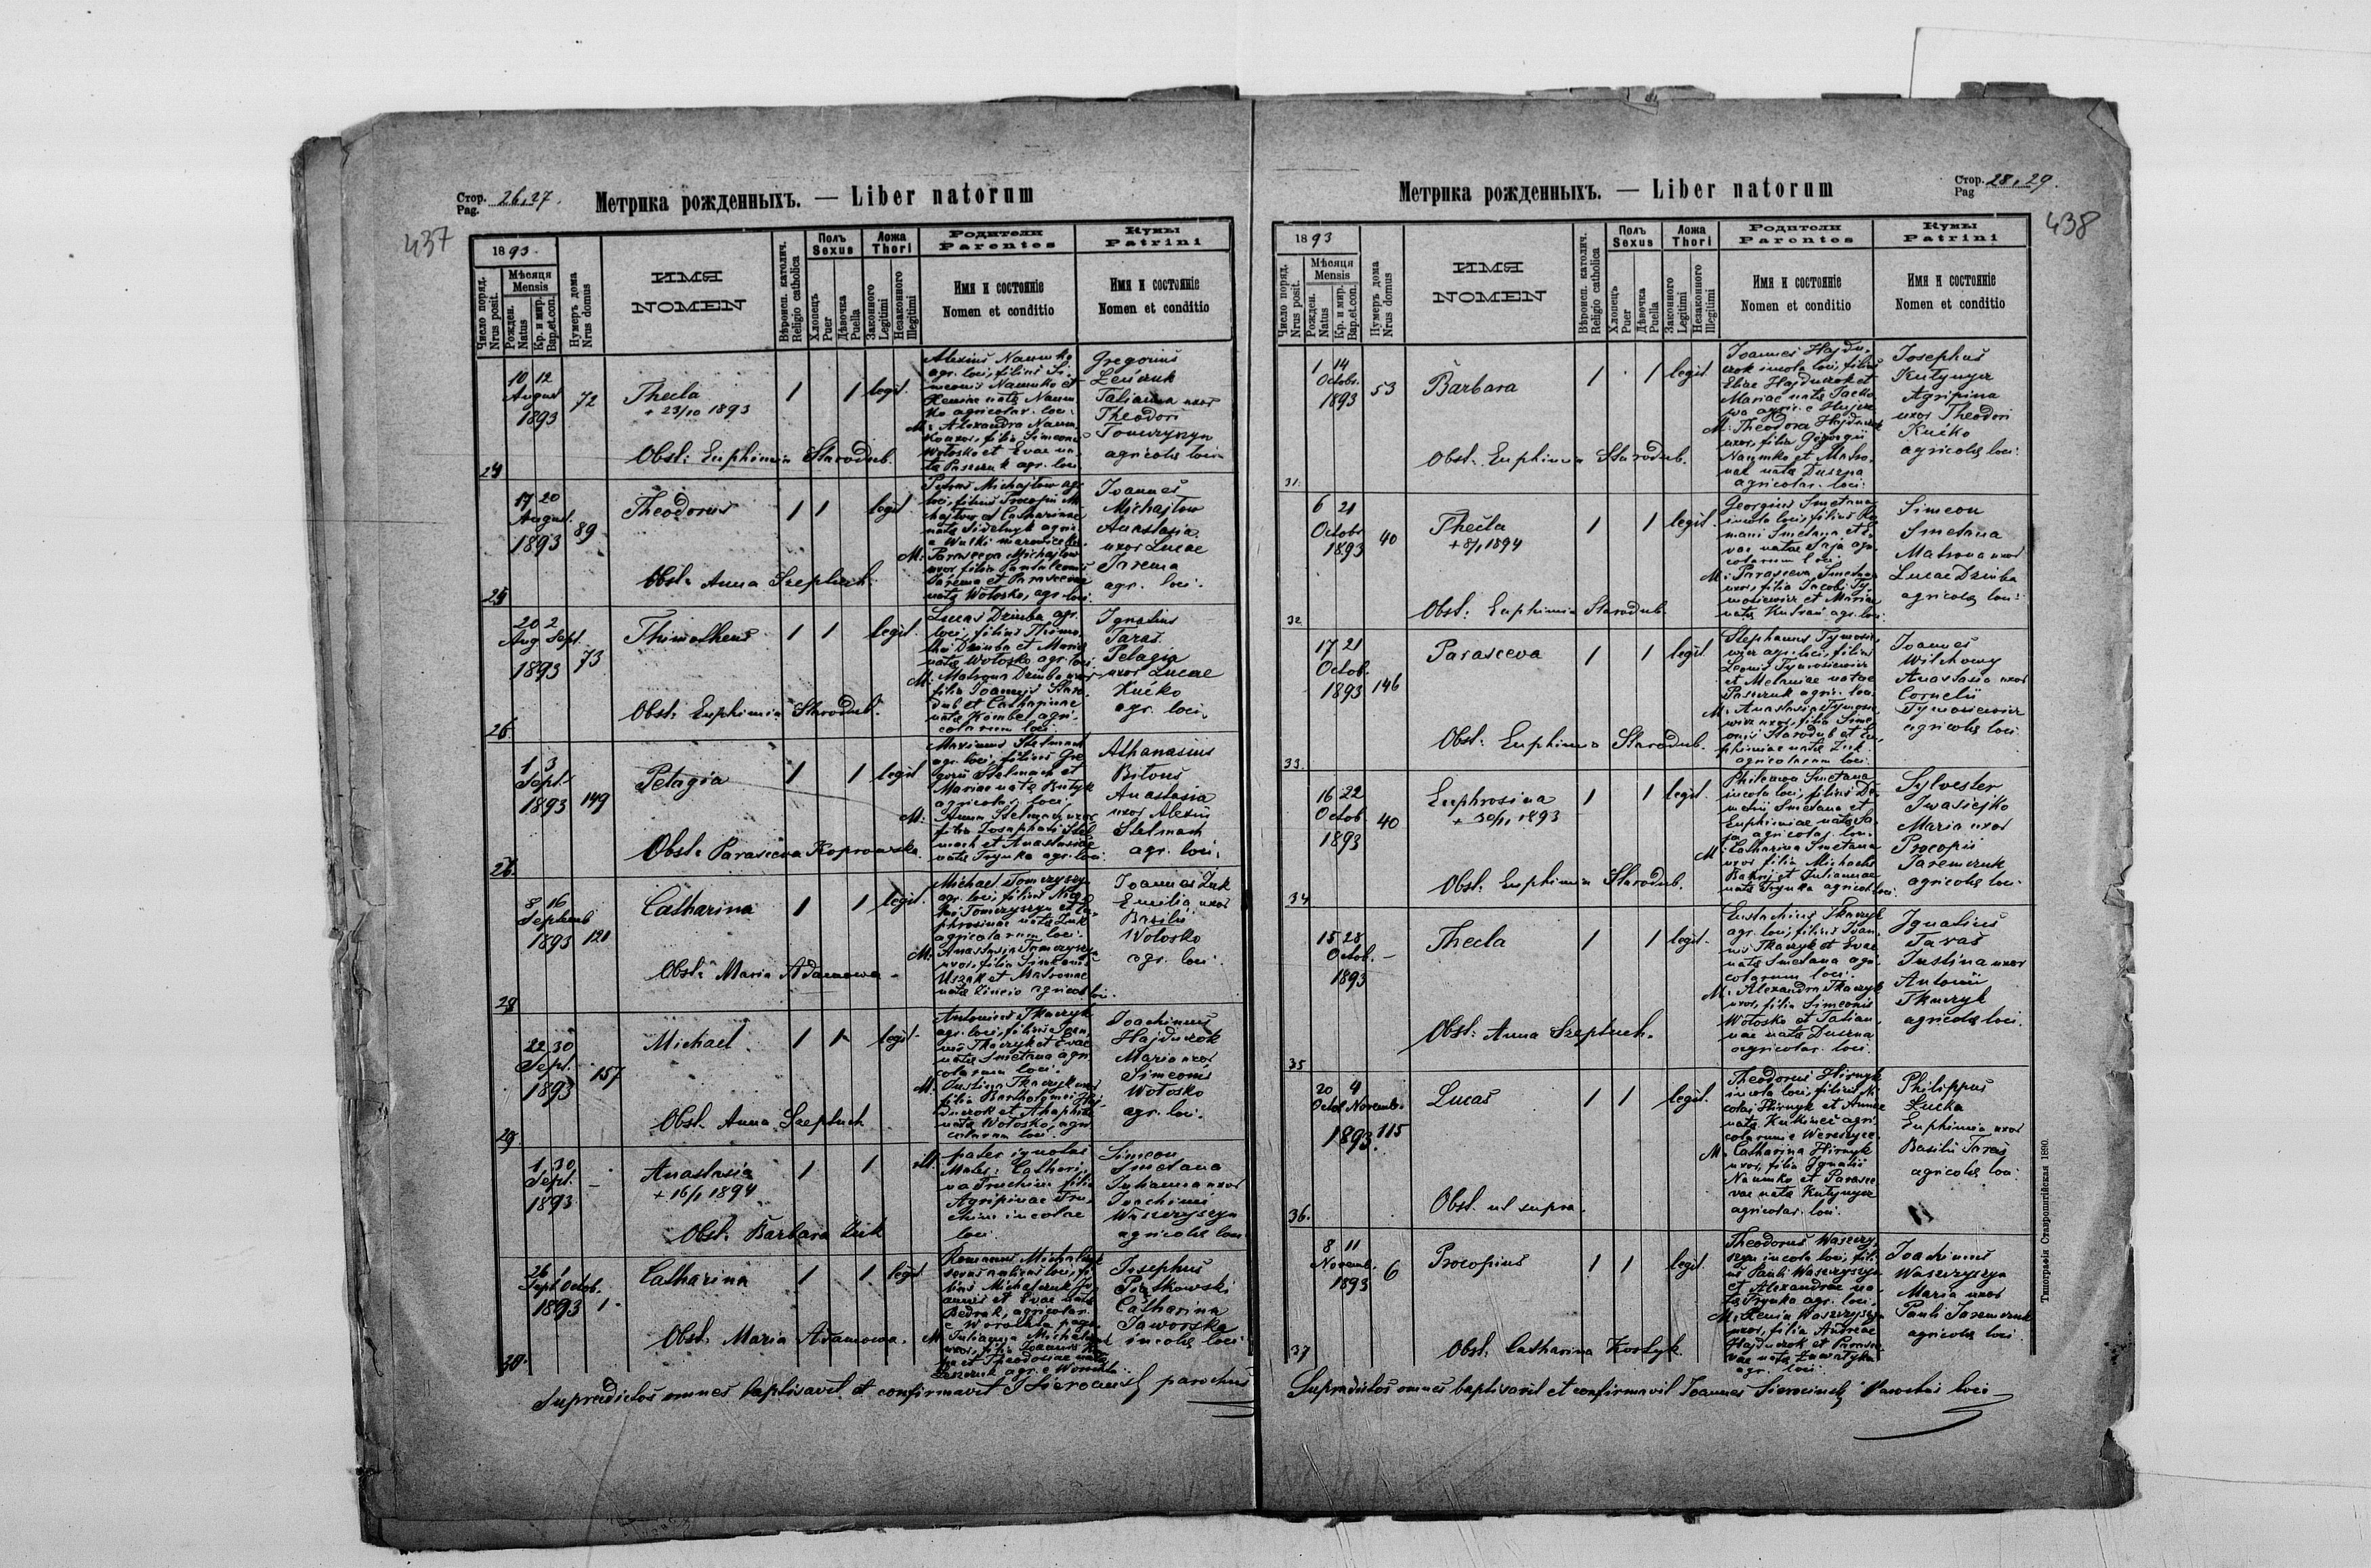 437
Стор.
Pag. 26, 27.
Метрика рожденныхъ. — Liber natorum
1893
Число поряд.
Nrus posit.
Мѣсяця
Mensis
Рожден.
Natus
Кр. и мир.
Bap.et.con.
Нумеръ дома
Nrus domus
ИМЯ
NOMEN
Вѣроисп. католич.
Religio catholica
Полъ
Sexus
Хлопецъ
Puer
Дѣвочка
Puella
Ложа
Thori
Законного
Legitimi
Незаконного
Illegitimi
Родители
Parentes
Имя и состояніе
Nomen et conditio
Кумы
Patrini
Имя и состояніе
Nomen et conditio
24
10 12
August
1893
72
Thecla
+ 23/10 1893
1 1 legit.
Obst: Euphimia Starodub.
Alexius Naumko
agr. loci, filius Si-
meonis Naumko et
Xeniae natae Naum
ko agricolar. loci.
M: Alexandra Naum
ko uxor, filia Simeonis
Wołosko et Evae na-
ta Paszczuk agr. loci
Gregorius
Tatianna uxor
Theodori
Tomczyszyn
agricolae loci
25
17 20
August.
1893
89
Theodorus
1 1 legit
Obst: Anna Szeptuch.
Petrus Michajłow agr.
loci, filius Procopii Mi
chajłow et Catharinae
M: Parasceva Michajłow
uxor filia Pantaleonis
Jarema et Parascevae
nata Wołosko, agr. loci
Joannes
Michajłow
Anastasia
uxor Lucae
Jarema
agr. loci.
26
20 2
Aug Sept.
1893
73
Thimotheus
1 1 legit.
Obst: Euphimia Starodub.
Lucas Dziuba agr.
loci, filius Thimo-
thei Dziuba et Maria
nata Wołosko agr. loci
M: Matrona Dziuba uxor
filia Joannis Staro-
dub et Catharinae
nata Kombel agri-
colarum loci
Ignatius
Taras.
Pelagia
uxor Lucae
Kućko
agr. loci.
1 3
Sept.
1893
149
Pelagia
1 1 legit
Obst: Parasceva Koprowska.
Maximus Stelmach
agr. loci, filius Gre
gorii Stelmach et
Mariae nata Butyk
agricolar. loci.
M: Anna Stelmach uxor
filia Josaphati Stel
mach et Anastasiae
nata Trynka agr. loci
Athanasius
Bitous
Anastasia
uxor Alexii
Stelmach
agr. loci.
28
8 16
Septemb
1893
121
Catharina
1 1 legit.
Obst: Maria Adamowa
Michael Tomczyszyn
agr. loci, filius
Tomczyszyn et Eu-
phrosinae nata Zuk
agricolarum loci.
M: Anastasia Tomczyszyn
uxor, filia Simeonis
et Matronae
agricol. loci.
Joannes Zuk
Emilia uxor
Basilii
Wołosko
agr. loci.
29.
22 30
Sept.
1893
157
Michael
1 1 legit.
Obst. Anna Szeptuch
Antonius Tkaczyk
agr. loci, filius Joan
nis Tkaczyk et Evae
nata Smetana agri
colarum loci.
M: Justina Tkaczyk uxor
filia Bartholomei Haj
duczok et Ahaphiae
nata Wołosko, agri
colarum loci.
Joachimus
Hajduczok
Maria uxor
Simeonis
Wołosko
agr. loci.
1 30
Sept.
1893
—
Anastasia
+ 16/1 1894
1 1 ill.
Obst: Barbara Zuk
pater ignotus
Mater: Cathari-
na Truchim filia
Agripinae Tru-
chim incolae
loci
Simeon
Smetana
Julianna uxor
Joachimi
Waszczyszyn
agricolae loci
30.
26 1
Sept Octob.
1893
1
Catharina
1 1 legit
Obst: Maria Adamowa.
Romanus Michalczuk
servus nativus loci, fi
lius Michalczuk Jo
annis et Evae nata
Bedruk, agricolar.
M: Julianna
uxor, filia Joannis
et Theodosiae nata
Josephus
Piątkowski
Catharina
Jaworska
incolae loci
Supradictos omnes baptisavit et confirmavit J Sierociński parochus
438
Стор.
Pag 28, 29.
Метрика рожденныхъ. — Liber natorum
1893
Число поряд.
Nrus posit.
Мѣсяця
Mensis
Рожден.
Natus
Кр. и мир.
Bap.et.con.
Нумеръ дома
Nrus domus
ИМЯ
NOMEN
Вѣроисп. католич.
Religio catholica
Полъ
Sexus
Хлопецъ
Puer
Дѣвочка
Puella
Ложа
Thori
Законного
Legitimi
Незаконного
Illegitimi
Родители
Parentes
Имя и состояніе
Nomen et conditio
Кумы
Patrini
Имя и состояніе
Nomen et conditio
31.
1 14
Octobr.
1893
53
Barbara
1 1 legit.
Obst: Euphimia Starodub.
Joannes Hajdu-
czok incola loci, filius
Eliae Hajduczok et
Mariae nata Jacko
M: Theodora Hajduczok
uxor, filia Georgii
Naumko et Matro-
nae nata Duszna
agricolar. loci.
Josephus
Kutynycz
Agripina
uxor Theodori
Kućko
agricolae loci.
32
6 21
Octobr
1893
40
Thecla
+ 8/1 1894
1 1 legit.
Obst: Euphimia Starodub.
Georgius Smetana
incola loci, filius Ro
mani Smetana et E-
vae natae Saja agri
colarum loci
M: Parasceva Smetana
uxor, filia Jacobi Ty-
mosiewicz et Mariae
agr. loci.
Simeon
Smetana
Matrona uxor
Lucae Dziuba
agricolae loci.
33.
17 21
Octob.
1893
146
Parasceva
1 1 legit
Obst: Euphimia Starodub.
Stephanus Tymosie-
wicz agr. loci, filius
Leonis Tymosiewicz
et Melaniae natae
Paszczuk agric. loci
M: Anastasia Tymosie
wicz uxor, filia Sime
onis Starodub et Eu-
phimiae nata Zuk
agricolarum loci
Joannes
Witchowy
Anastasia uxor
Cornelii
Tymosiewicz
agricolae loci
34
16 22
Octob
1893
40
Euphrosina
+ 30/11 1893
1 1 legit.
Obst: Euphimia Starodub.
Philemon Smetana
incola loci, filius De
metrii Smetana et
Euphimiae nata Sa
ja agricolar. loci.
M: Catharina Smetana
uxor filia Michaelis
et Juliannae
nata Trynka agricol. loci.
Sylvester
Iwasiejko
Maria uxor
Procopii
Jaremczuk
agricolae loci.
35
15 28
Octob.
1893
—
Thecla
1 1 legit.
Obst: Anna Szeptuch.
Eustachius Tkaczyk
agr. loci, filius Joan-
nis Tkaczyk et Evae
nata Smetana agri
colarum loci.
M: Alexandra Tkaczyk
uxor, filia Simeonis
Wołosko et Tatian-
nae nata Duszna
agricolar. loci.
Ignatius
Taras
Justina uxor
Antonii
Tkaczyk
agricolae loci.
36.
20 4
Octob Novemb.
1893.
115
Lucas
1 1 legit.
Obst. ut supra.
Theodorus Hirnyk
incola loci, filius Ni
colai Hirnyk et Annae
agri
colarum e Wereszyce.
M: Catharina Hirnyk
uxor, filia Ignatii
Naumko et Parasce
vae nata Kutynycz
agricolar. loci.
Philippus
Łucka
Euphimia uxor
Basilii Taras
agricolae loci.
37
8 11
Novemb.
1893
6
Procopius
1 1 legit.
Obst: Catharina Kostyk.
Theodorus Waszczy-
szyn incola loci, fili-
us Pauli Waszczyszyn
et Alexandrae na-
ta Trynka agr. loci.
M: Xenia Waszczyszyn
uxor, filia Andreae
Hajduczok et Parasce
vae nata
agr. loci.
Joachimus
Waszczyszyn
Maria uxor
Pauli Jaremczuk
agricolae loci
Supradictos omnes baptisavit et confirmavit Joannes Sierociński Parochus loci
Типографія Ставропигійская 1890.